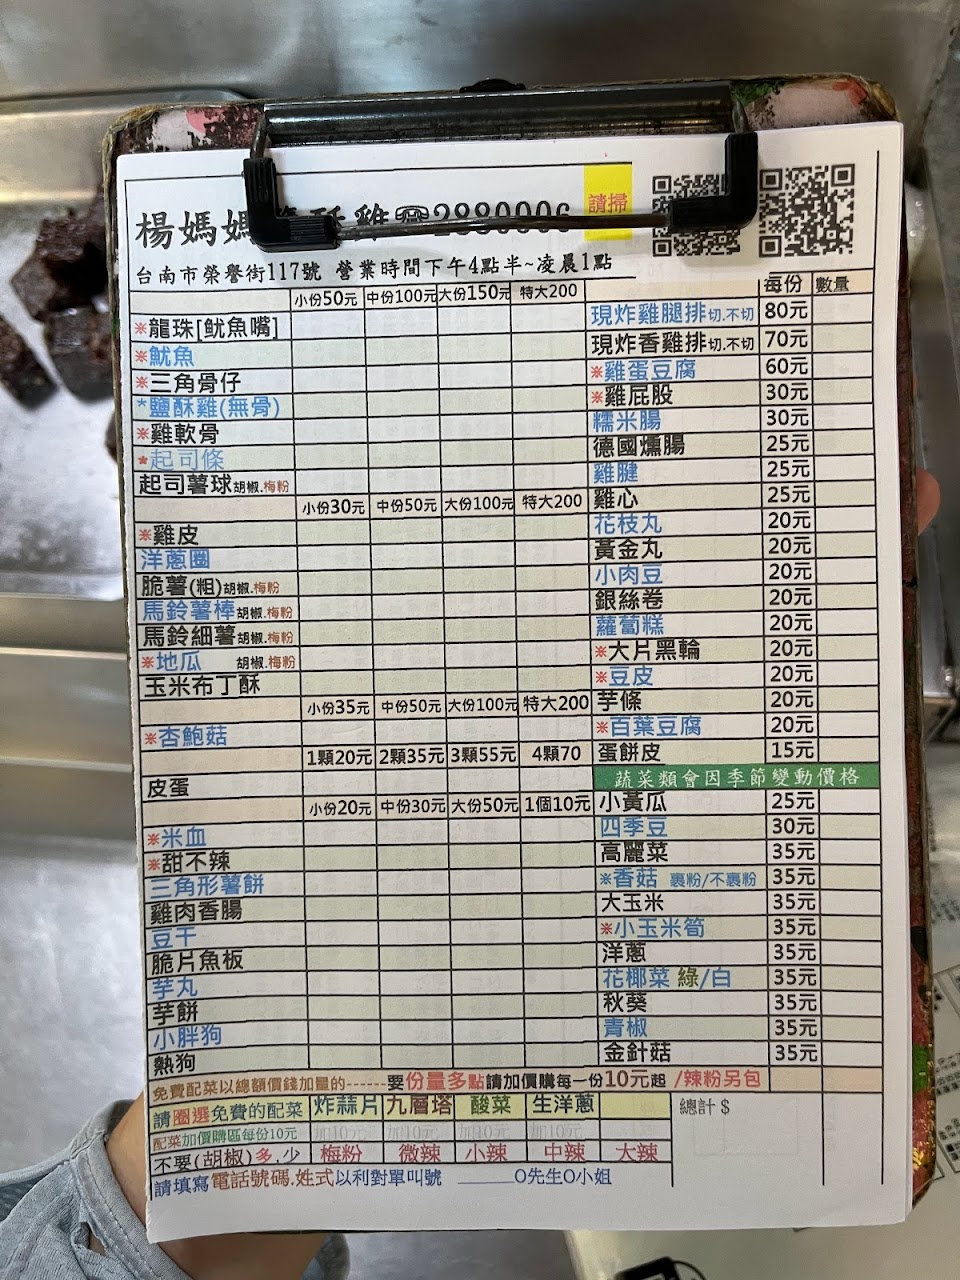 楊媽媽 酥雞☎2880006 請掃
台南市榮譽街117號 營業時間下午4點半~凌晨1點
小份50元 中份100元 大份150元 特大200
※龍珠[魷魚嘴]
※魷魚
※三角骨仔
*鹽酥雞(無骨)
※雞軟骨
*起司條
起司薯球胡椒.梅粉
小份30元 中份50元 大份100元 特大200
※雞皮
洋蔥圈
脆薯(粗)胡椒.梅粉
馬鈴薯棒胡椒.梅粉
馬鈴細薯胡椒.梅粉
※地瓜 胡椒.梅粉
玉米布丁酥
小份35元 中份50元 大份100元 特大200
※杏鮑菇
1顆20元 2顆35元 3顆55元 4顆70
皮蛋
小份20元 中份30元 大份50元 1個10元
※米血
※甜不辣
三角形薯餅
雞肉香腸
豆干
脆片魚板
芋丸
芋餅
小胖狗
熱狗
每份 數量
現炸雞腿排切.不切 80元
現炸香雞排切.不切 70元
※雞蛋豆腐 60元
※雞屁股 30元
糯米腸 30元
德國燻腸 25元
雞腱 25元
雞心 25元
花枝丸 20元
黃金丸 20元
小肉豆 20元
銀絲卷 20元
蘿蔔糕 20元
※大片黑輪 20元
※豆皮 20元
芋條 20元
※百葉豆腐 20元
蛋餅皮 15元
蔬菜類會因季節變動價格
小黃瓜 25元
四季豆 30元
高麗菜 35元
※香菇 裹粉/不裹粉 35元
大玉米 35元
※小玉米筍 35元
洋蔥 35元
花椰菜 綠/白 35元
秋葵 35元
青椒 35元
金針菇 35元
免費配菜以總額價錢加量的------要份量多點請加價購每一份10元起 /辣粉另包
請圈選免費的配菜 炸蒜片 九層塔 酸菜 生洋蔥
總計 $
配菜加價購區每份10元 加10元 加10元 加10元 加10元
不要(胡椒)多.少 梅粉 微辣 小辣 中辣 大辣
請填寫電話號碼.姓式以利對單叫號 ______O先生O小姐